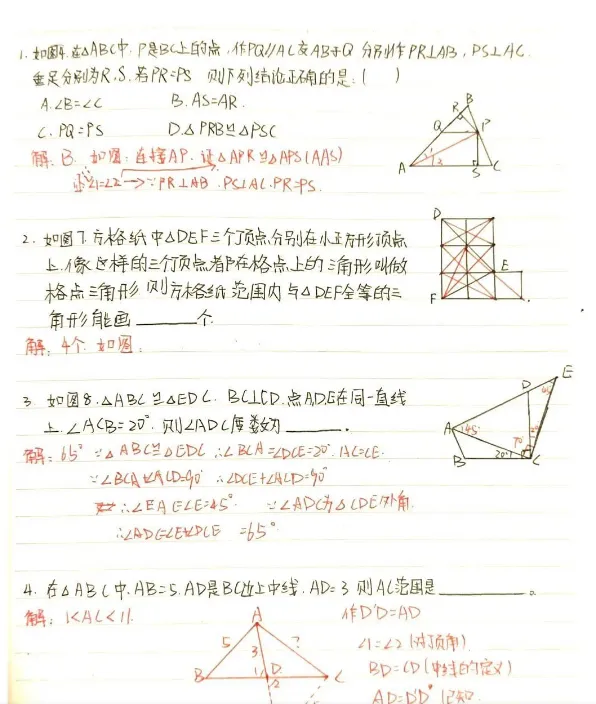 1. 如图4.在△ABC中,P是BC上的点,作PQ//AC交AB于Q 分别作PR⊥AB,PS⊥AC.
垂足分别为R,S,若PR=PS 则下列结论正确的是:( )
A.∠B=∠C B. AS=AR.
C. PQ=PS D.△PRB≌△PSC
解: B. 如图:连接AP. 证△APR≌△APS(AAS)
∠1=∠2 → ∵PR⊥AB. PS⊥AC.PR=PS.
B
R
Q
P
A
1
2
S
C
2. 如图7.方格纸中△DEF三个顶点分别在小正方形顶点
上.像这样的三个顶点都在格点上的三角形叫做
格点三角形 则方格纸范围内与△DEF全等的三
角形能画______个.
解: 4个. 如图:
D
E
F
3. 如图8.△ABC≌△EDC. BC⊥CD.点A.D.E在同一直线
上.∠ACB=20°.则∠ADC度数为______.
解: 65° ∵△ABC≌△EDC ∴∠BCA=∠DCE=20°.AC=CE.
∵∠BCA+∠ACD=90° ∴∠DCE+∠ACD=90°
∴∠EAC=∠E=45° ∵∠ADC为△CDE外角.
∴∠ADC=∠E+∠DCE =65°
E
D
A
45°
70°
20°
B
C
4. 在△ABC中.AB=5.AD是BC边上中线.AD=3 则AC范围是______。
解: 1<AC<11.
A
5
3
?
B
1
D
2
C
作D'D=AD
∠1=∠2 (对顶角)
BD=CD(中线的定义)
AD=D'D 已知.